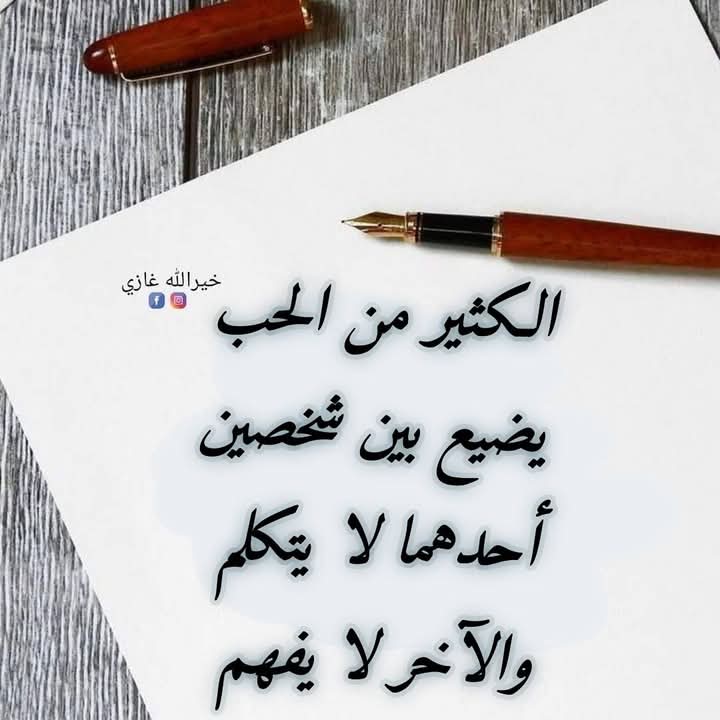 خيرالله غازي
الكثير من الحب
يضيع بين شخصين
أحدهما لا يتكلم
والآخر لا يفهم